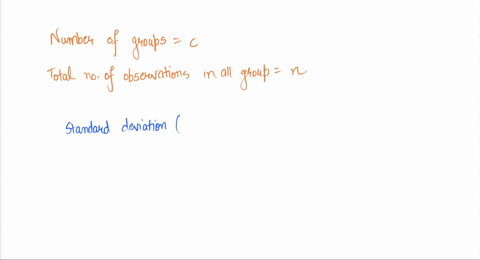 Number of groups = c
Total no. of observations in all group = n
Standard deviation (